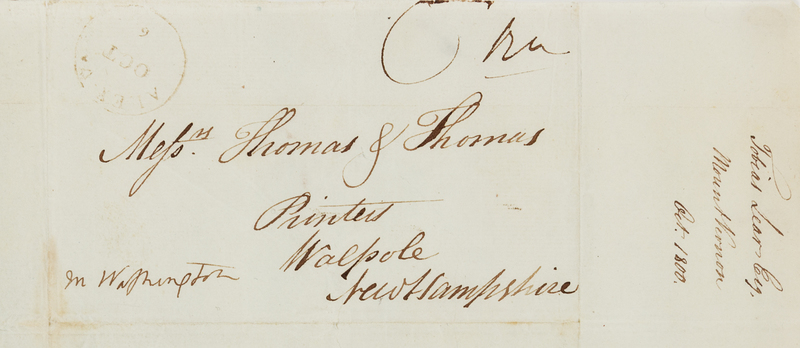 6
OCT
ALEX.
Messrs. Thomas & Thomas
Printers
Walpole
New Hampshire
m Washington
Tobias Lear Esq.
Mount Vernon
Oct. 1800.